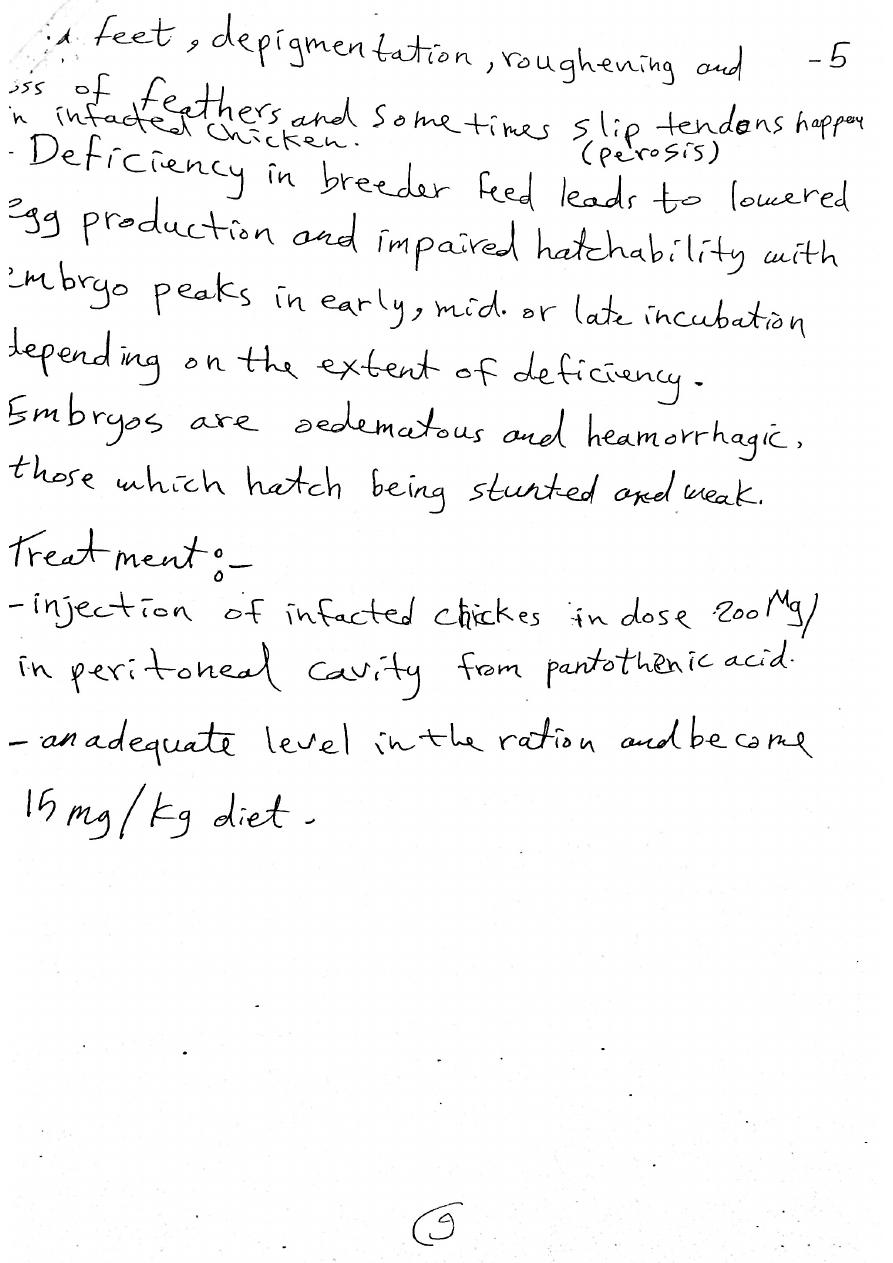 feet, depigmentation, roughening and -5
oss of feathers and sometimes slip tendons happen
n infacted chicken. (perosis)
- Deficiency in breeder feed leads to lowered
egg production and impaired hatchability with
embryo peaks in early, mid. or late incubation
depending on the extent of deficiency.
Embryos are oedematous and heamorrhagic,
those which hatch being stunted and weak.
Treatment:-
- injection of infacted chickes in dose 200 Mg/
in peritoneal cavity from pantothenic acid.
- an adequate level in the ration and become
15 mg/kg diet.
9